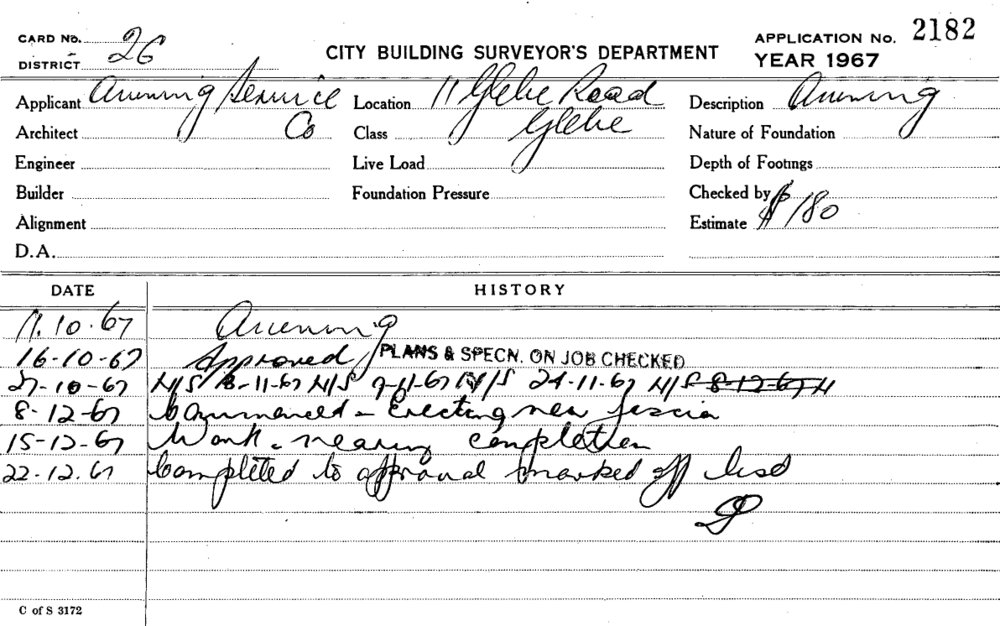 CARD No. 26
DISTRICT
CITY BUILDING SURVEYOR'S DEPARTMENT
APPLICATION No. 2182
YEAR 1967
Applicant Awning Service Co
Location 11 Glebe Road Glebe
Description Awning
Architect
Class
Nature of Foundation
Engineer
Live Load
Depth of Footings
Builder
Foundation Pressure
Checked by
Alignment
Estimate $180
D.A.
DATE HISTORY
11.10.67 Awning
16-10-67 Approved PLANS & SPECN. ON JOB CHECKED
27-10-67 N/S 3-11-67 N/S 9-11-67 N/S 24-11-67 N/S 8-12-67 N
8-12-67 Commenced - Erecting new fascia
15-12-67 Work - nearing completion
22-12.67 Completed to approval marked off list
C of S 3172